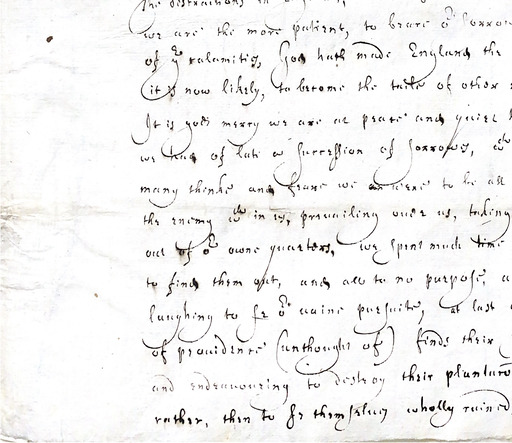 the distractions in
we are the more patient, to beare or sorrow
of yr calamities, God hath made England the
it is now likely, to become the taile of other
It is gods mercy we are at peace and quiet
we had of late a succession of sorrows, wch
many thinke and feare we were to be all
the enemy wch in us, prevailing over us, taking
out of or owne quarters, we spent much time
to find them out, and all to no purpose, a
laughing to se or vaine pursuite, at last
of providence (unthought of) finds their
and endeavouring to destroy their plantatio
rather, then to se themselves wholly ruined